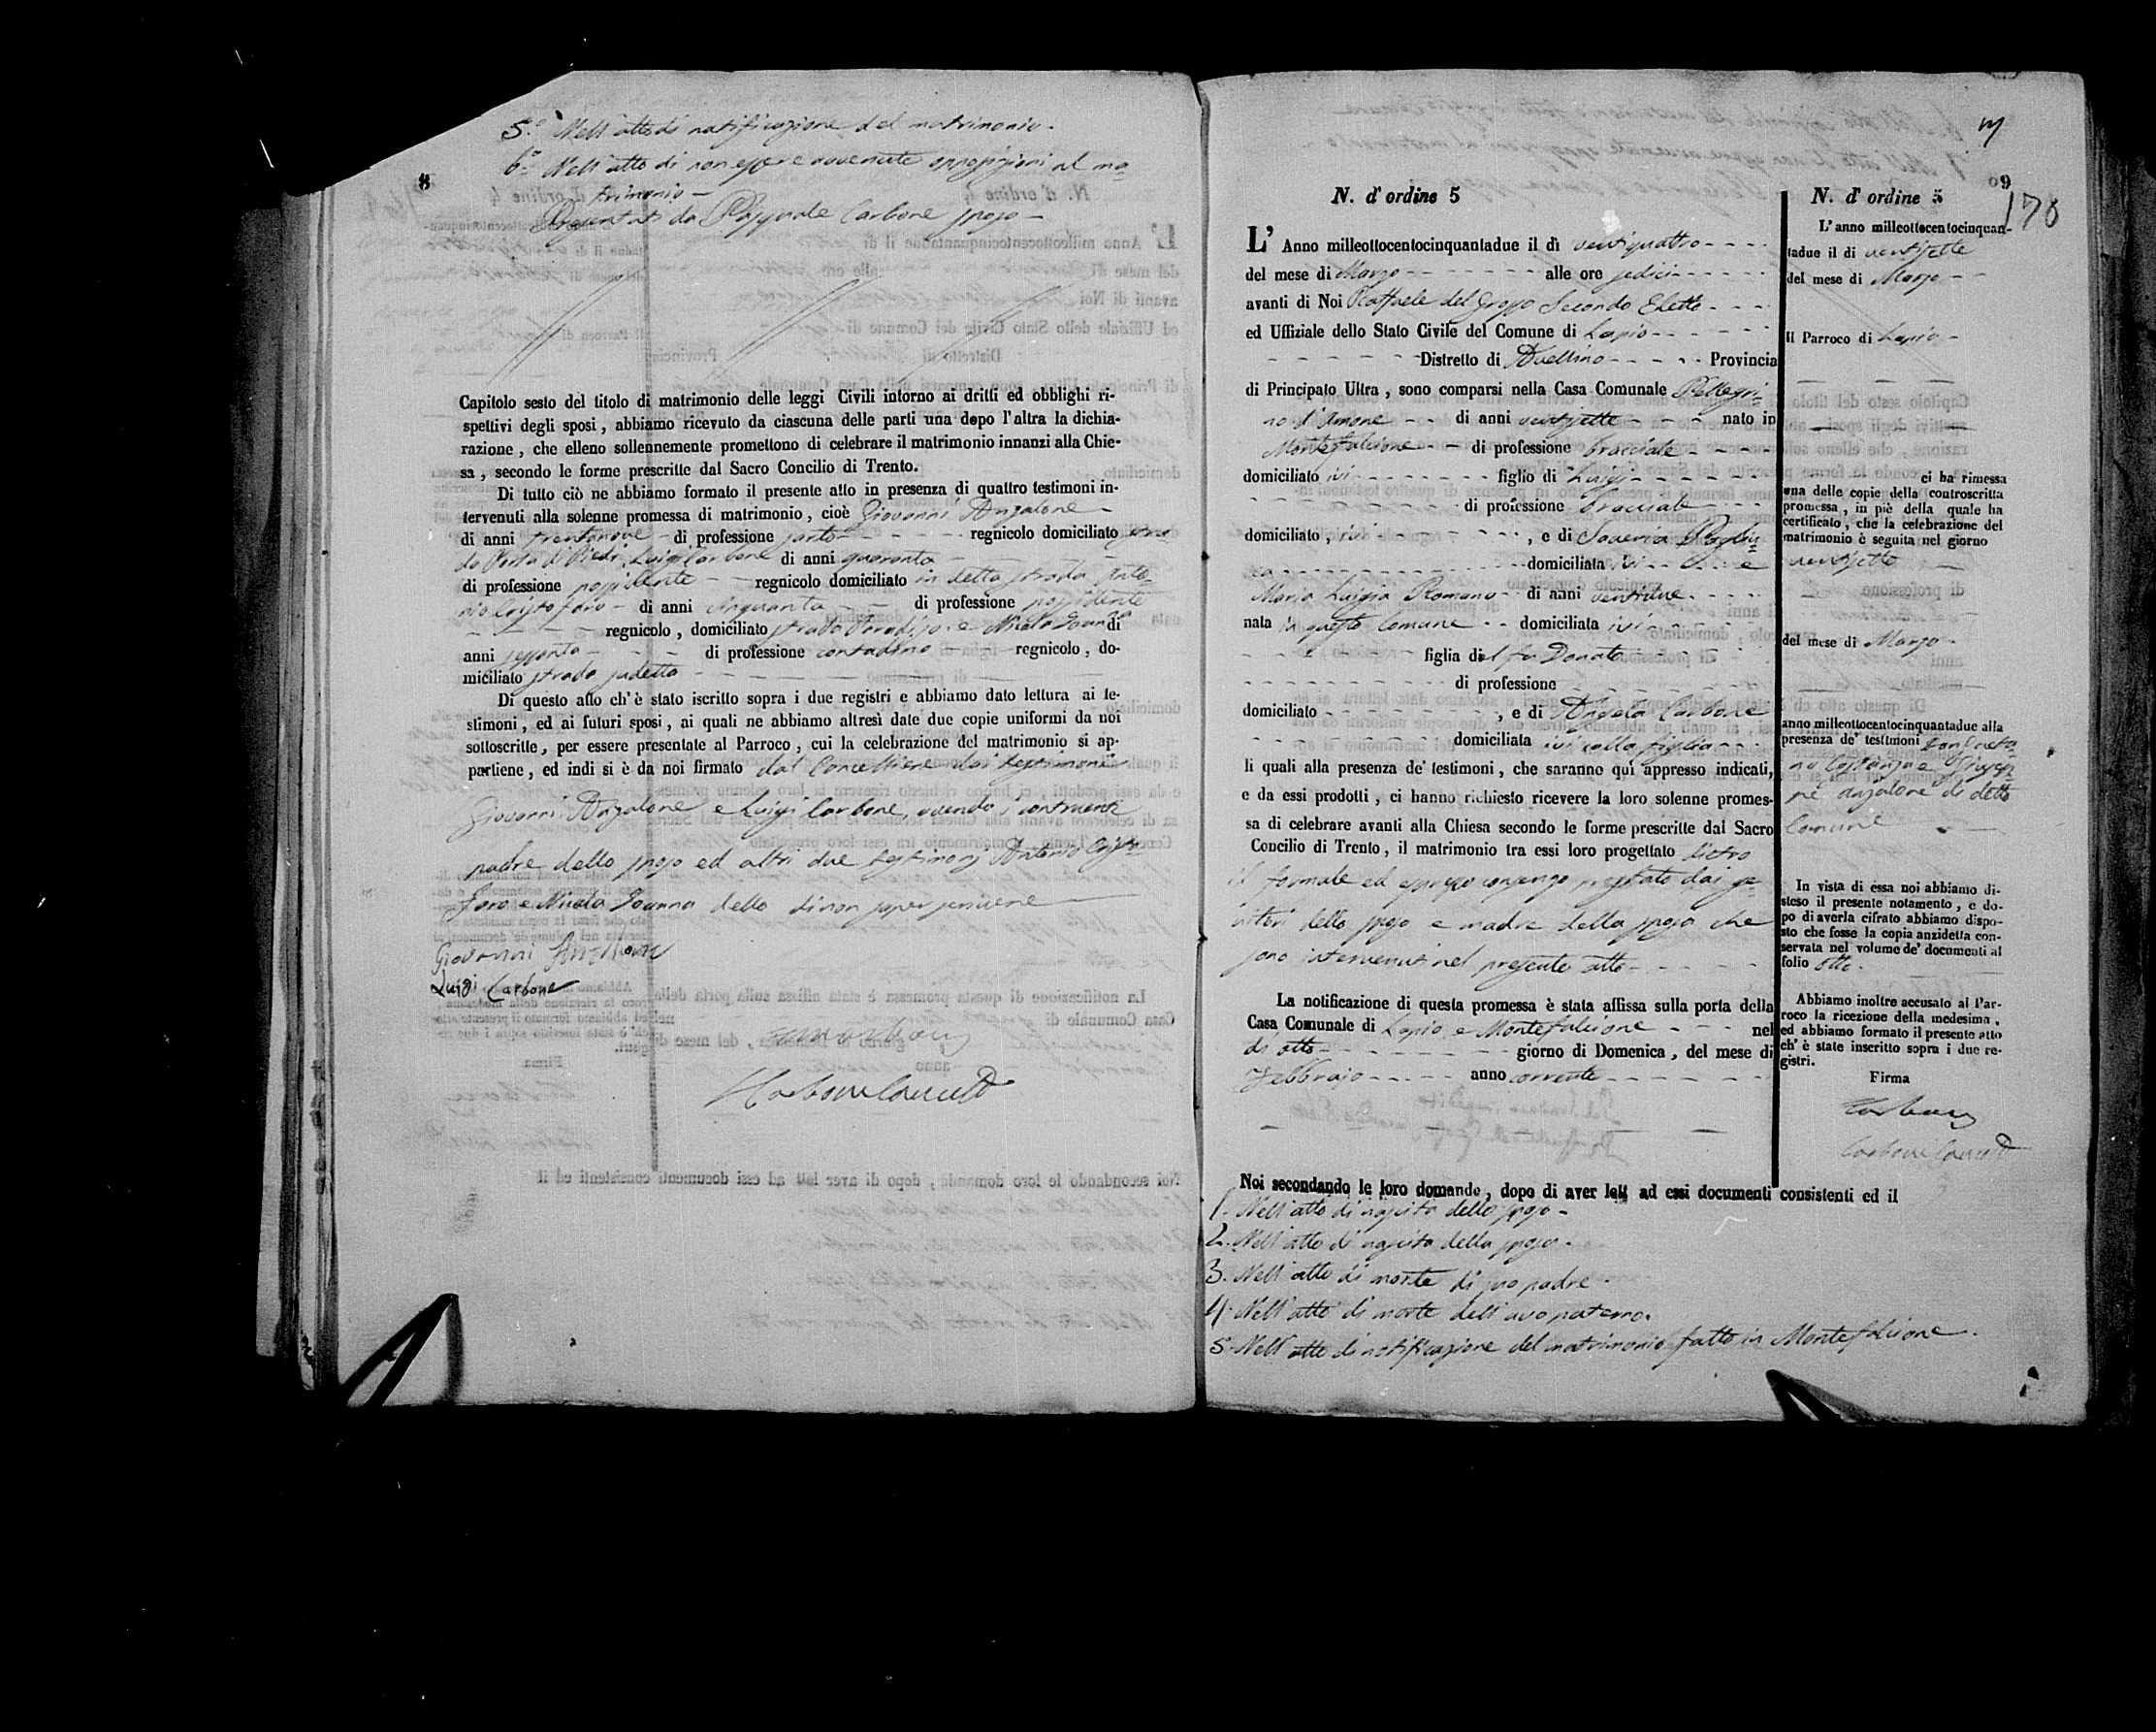 5.º Nell'atto di notificazione del matrimonio.
6.º Nell'atto di non essere avvenute opposizioni al ma=
trimonio
Presentati da Pasquale Carbone sposo
Capitolo sesto del titolo di matrimonio delle leggi Civili intorno ai dritti ed obblighi ri-
spettivi degli sposi, abbiamo ricevuto da ciascuna delle parti una dopo l'altra la dichia-
razione, che elleno sollennemente promettono di celebrare il matrimonio innanzi alla Chie-
sa, secondo le forme prescritte dal Sacro Concilio di Trento.
Di tutto ciò ne abbiamo formato il presente atto in presenza di quattro testimoni in-
tervenuti alla solenne promessa di matrimonio, cioè Giovanni Anzalone
di anni trentanove di professione sarto regnicolo domiciliato
Luigi Carbone di anni quaranta
di professione possidente regnicolo domiciliato in detta strada Anto=
nio Cristofaro di anni cinquanta di professione possidente
regnicolo, domiciliato strada Paradiso e Nicola Ioanna di
anni sessanta di professione contadino regnicolo, do-
miciliato strada sudetta
Di questo atto ch'è stato iscritto sopra i due registri e abbiamo dato lettura ai te-
stimoni, ed ai futuri sposi, ai quali ne abbiamo altresì date due copie uniformi da noi
sottoscritte, per essere presentate al Parroco, cui la celebrazione del matrimonio si ap-
partiene, ed indi si è da noi firmato dal Cancelliere dai testimoni
Giovanni Anzalone e Luigi Carbone, avendo i contraenti
padre dello sposo ed altri due testimonj Antonio Cristo=
faro e Nicola Ioanna detto di non saper scrivere
Giovanni Anzalone
Luigi Carbone
Carbone Cancell
178
N. d'ordine 5
L'Anno milleottocentocinquantadue il dì ventiquattro
del mese di Marzo alle ore sedici
avanti di Noi Raffaele del Grosso Secondo Eletto
ed Uffiziale dello Stato Civile del Comune di Lapio
Distretto di Avellino Provincia
di Principato Ultra, sono comparsi nella Casa Comunale Pellegri=
no d'Amone di anni ventisette nato in
Montefalcione di professione bracciale
domiciliato ivi figlio di Luigi
di professione bracciale
domiciliato, ivi, e di Saveria
domiciliata ivi e
Maria Luigia Romano di anni ventidue
nata in questo Comune domiciliata ivi
figlia del fu Donato
di professione
domiciliato, e di Angela Carbone
domiciliata ivi colla figlia
li quali alla presenza de' testimoni, che saranno qui appresso indicati,
e da essi prodotti, ci hanno richiesto ricevere la loro solenne promes-
sa di celebrare avanti alla Chiesa secondo le forme prescritte dal Sacro
Concilio di Trento, il matrimonio tra essi loro progettato dietro
il formale ed espresso consenso prestato dai ge=
nitori dello sposo e madre della sposa che
sono intervenuti nel presente atto
La notificazione di questa promessa è stata affissa sulla porta della
Casa Comunale di Lapio e Montefalcione nel
dì otto giorno di Domenica, del mese di
Febbrajo anno corrente
Noi secondando le loro domande, dopo di aver lett ad essi documenti consistenti ed il
1. Nell'atto di nascita dello sposo
2. Nell'atto di nascita della sposa.
3. Nell'atto di morte di suo padre.
4. Nell'atto di morte dell'avo paterno.
5. Nell'atto di notificazione del matrimonio fatto in Montefalcione.
N. d'ordine 5
L'anno milleottocentocinquan-
tadue il di ventisette
del mese di Marzo
Il Parroco di Lapio
ci ha rimessa
una delle copie della controscritta
promessa, in piè della quale ha
certificato, che la celebrazione del
matrimonio è seguita nel giorno
ventisette
del mese di Marzo
anno milleottocentocinquantadue alla
presenza de' testimoni
Costanza e Giusep=
pe Anzalone di detto
Comune
In vista di essa noi abbiamo di-
steso il presente notamento, e do-
po di averla cifrato abbiamo dispo-
sto che fosse la copia anzidetta con-
servata nel volume de' documenti al
folio otto.
Abbiamo inoltre accusato al Par-
roco la ricezione della medesima,
ed abbiamo formato il presente atto
ch'è stato inscritto sopra i due re-
gistri.
Firma
Carbone Cancell